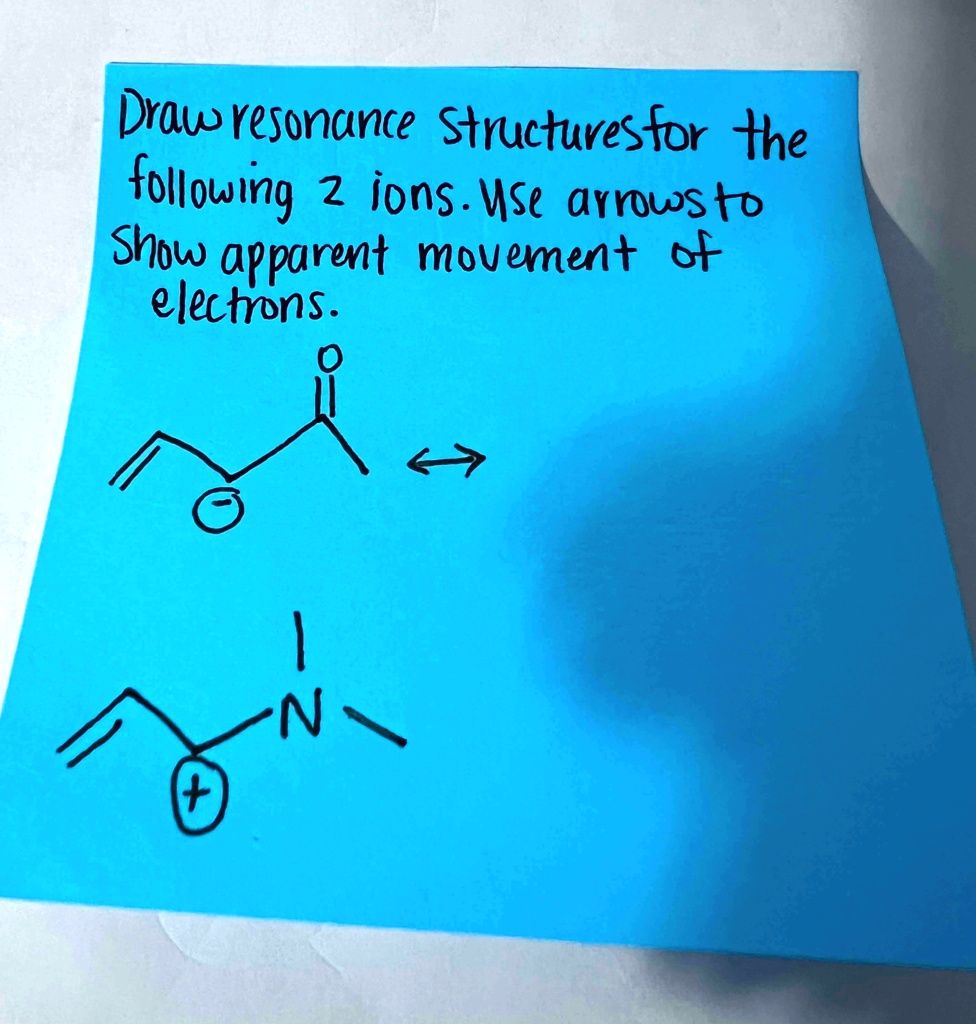 Draw resonance structures for the
following 2 ions. Use arrows to
Show apparent movement of
electrons.
O
⊖
N
⊕